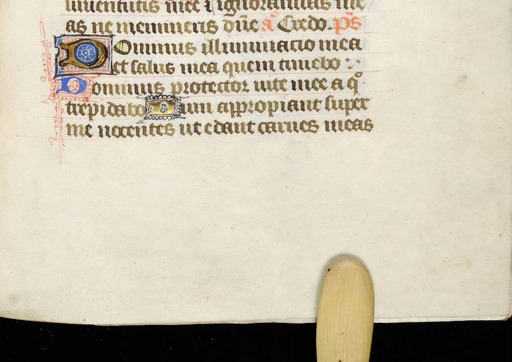 iuventutis mee et ignorantias me
as ne memineris dñe a Credo. p̄s
Dominus illuminatio mea
et salus mea quem timebo :
Dominus protector vite mee a q°
trepidabo Dum appropiant super
me nocentes ut edant carnes meas